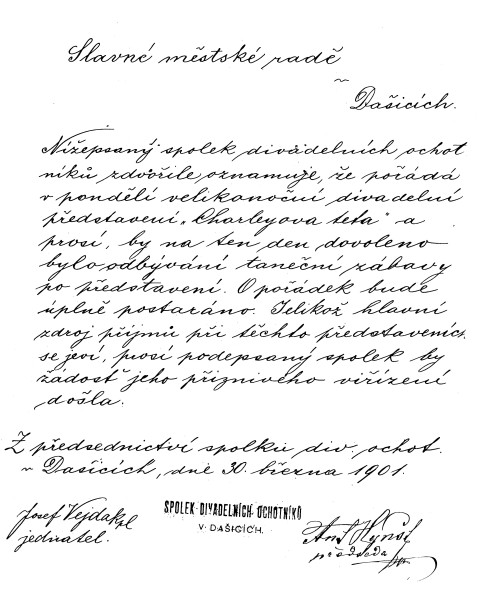 Slavné městské radě
v
Dašicích.
Nížepsaný spolek divadelních ochot
níků zdvořile oznamuje, že pořádá
v pondělí velikonoční divadelní
představení „Charleyova teta" a
prosí, by na ten den dovoleno
bylo odbývání taneční zábavy
po představení. O pořádek bude
úplně postaráno. Jelikož hlavní
zdroj příjmů při těchto představeních
se jeví, prosí podepsaný spolek by
žádosť jeho příznivého vířízení
došla.
Z předsednictví spolku div. ochot.
v Dašicích, dne 30. března 1901.
Josef Vejdakpl
jednatel.
SPOLEK DIVADELNÍCH OCHOTNÍKŮ
V DAŠICÍCH.
Ant. Hynšt
předseda